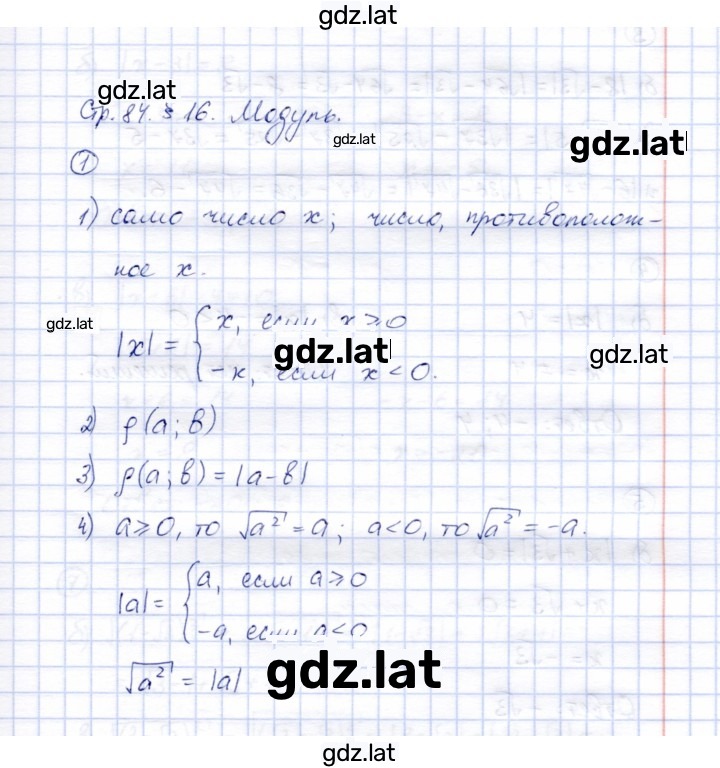 gdz.lat
gdz.lat
Стр. 84. § 16. Модуль.
gdz.lat
gdz.lat
1
1) само число x; число, противополож-
ное x.
gdz.lat
|x| = { x, если x ⩾ 0
gdz.lat
gdz.lat
-x, если x < 0.
2) ρ(a; b)
3) ρ(a; b) = |a-b|
4) a⩾0, то √a² = a; a<0, то √a² = -a.
|a| = { a, если a⩾0
-a, если a<0
√a² = |a|
gdz.lat
gdz.lat